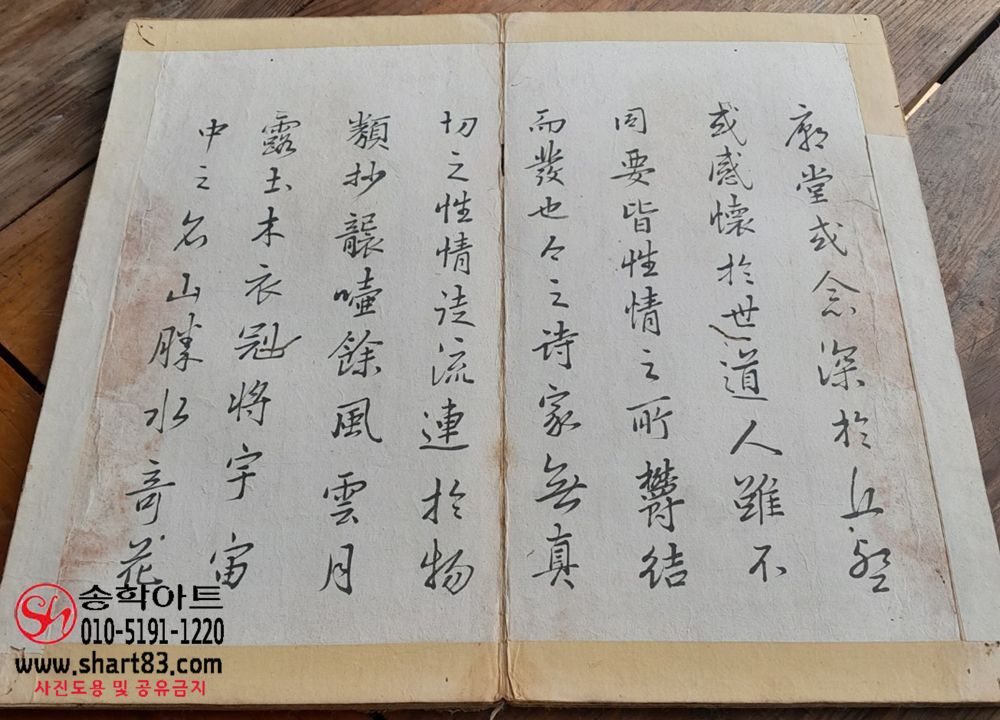 廟堂或念深於丘壑
或感懷於世道人雖不
同要皆性情之所鬱結
而發也今之詩家無真
切之性情徒流連於物
類抄襲唾餘風雲月
露土木衣冠將宇宙
中之名山勝水奇花
Sh 송학아트
010-5191-1220
www.shart83.com
사진도용 및 공유금지